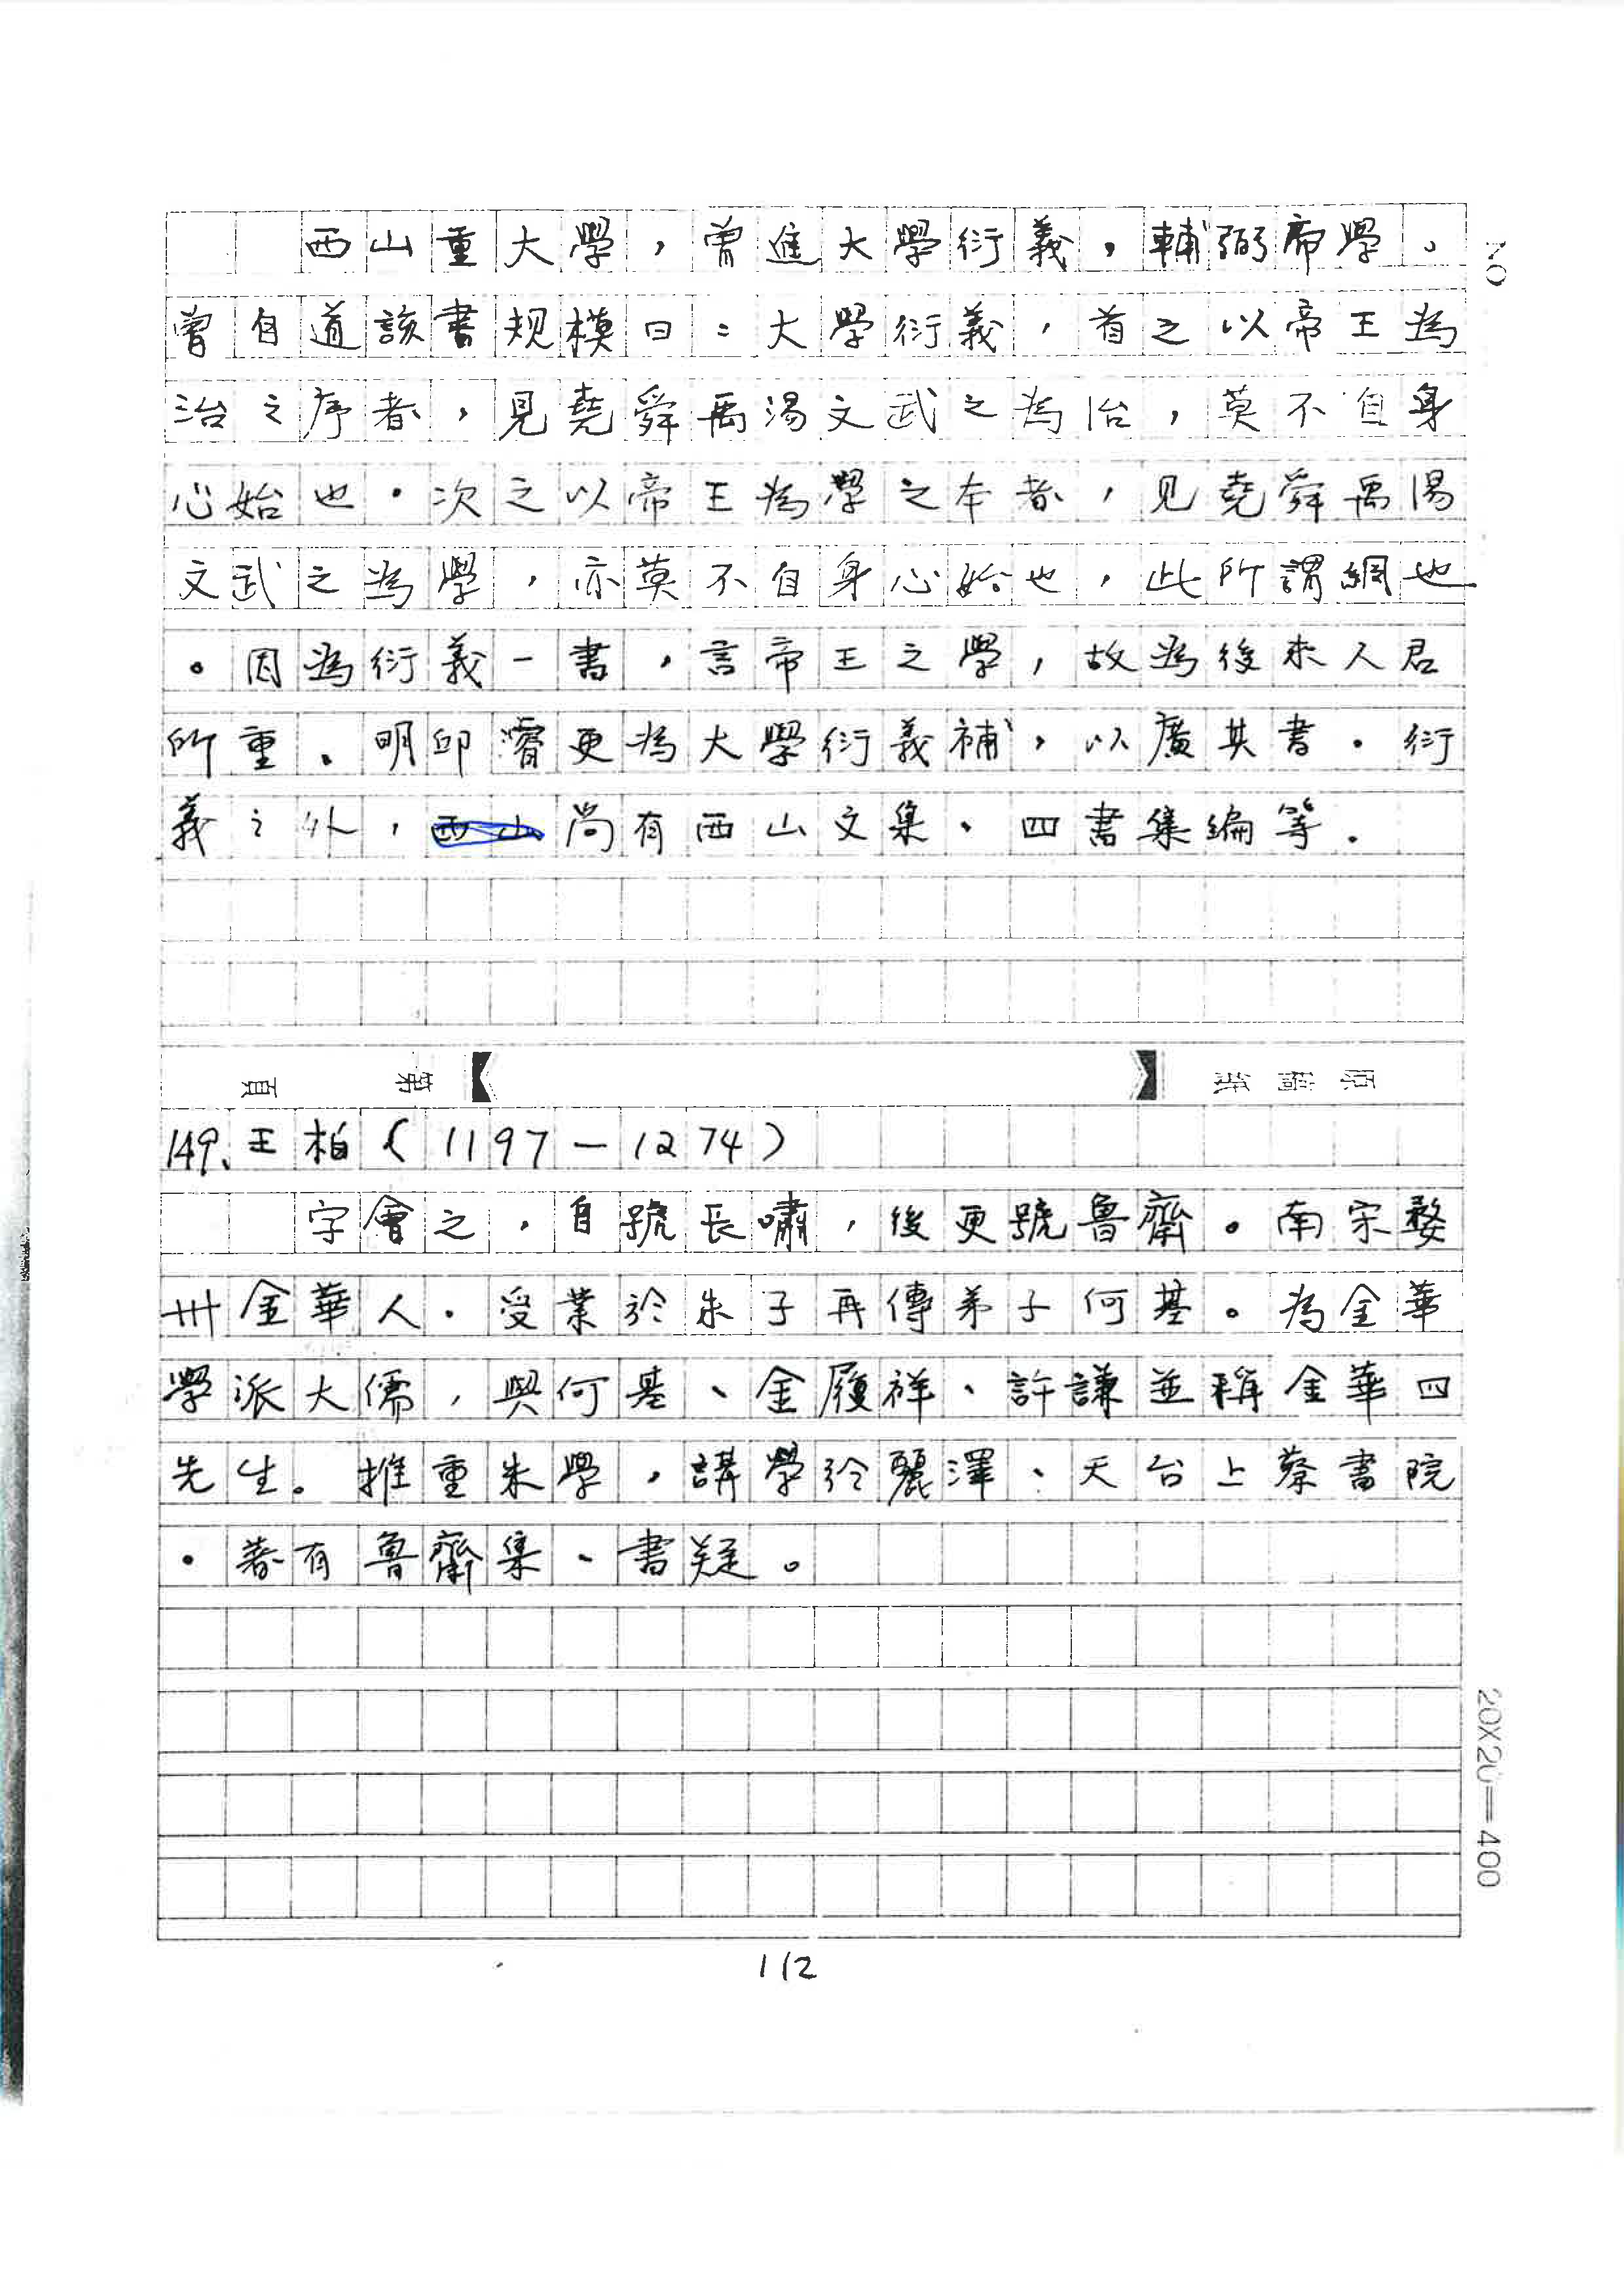 西山重大學，曾進大學衍義，輔弼帝學。
曾自道該書規模曰：大學衍義，首之以帝王為
治之序者，見堯舜禹湯文武之為治，莫不自身
心始也。次之以帝王為學之本者，見堯舜禹湯
文武之為學，亦莫不自身心始也，此所謂綱也
。因為衍義一書，言帝王之學，故為後來人君
所重。明邱濬更為大學衍義補，以廣其書。衍
義之外，西山尚有西山文集、四書集編等。
頁 第 稿紙 原
149、王柏（1197－1274）
字會之，自號長嘯，後更號魯齋。南宋婺
州金華人。受業於朱子再傳弟子何基。為金華
學派大儒，與何基、金履祥、許謙並稱金華四
先生。推重朱學，講學於麗澤、天台上蔡書院
。著有魯齋集、書疑。
NO
20X20=400
112